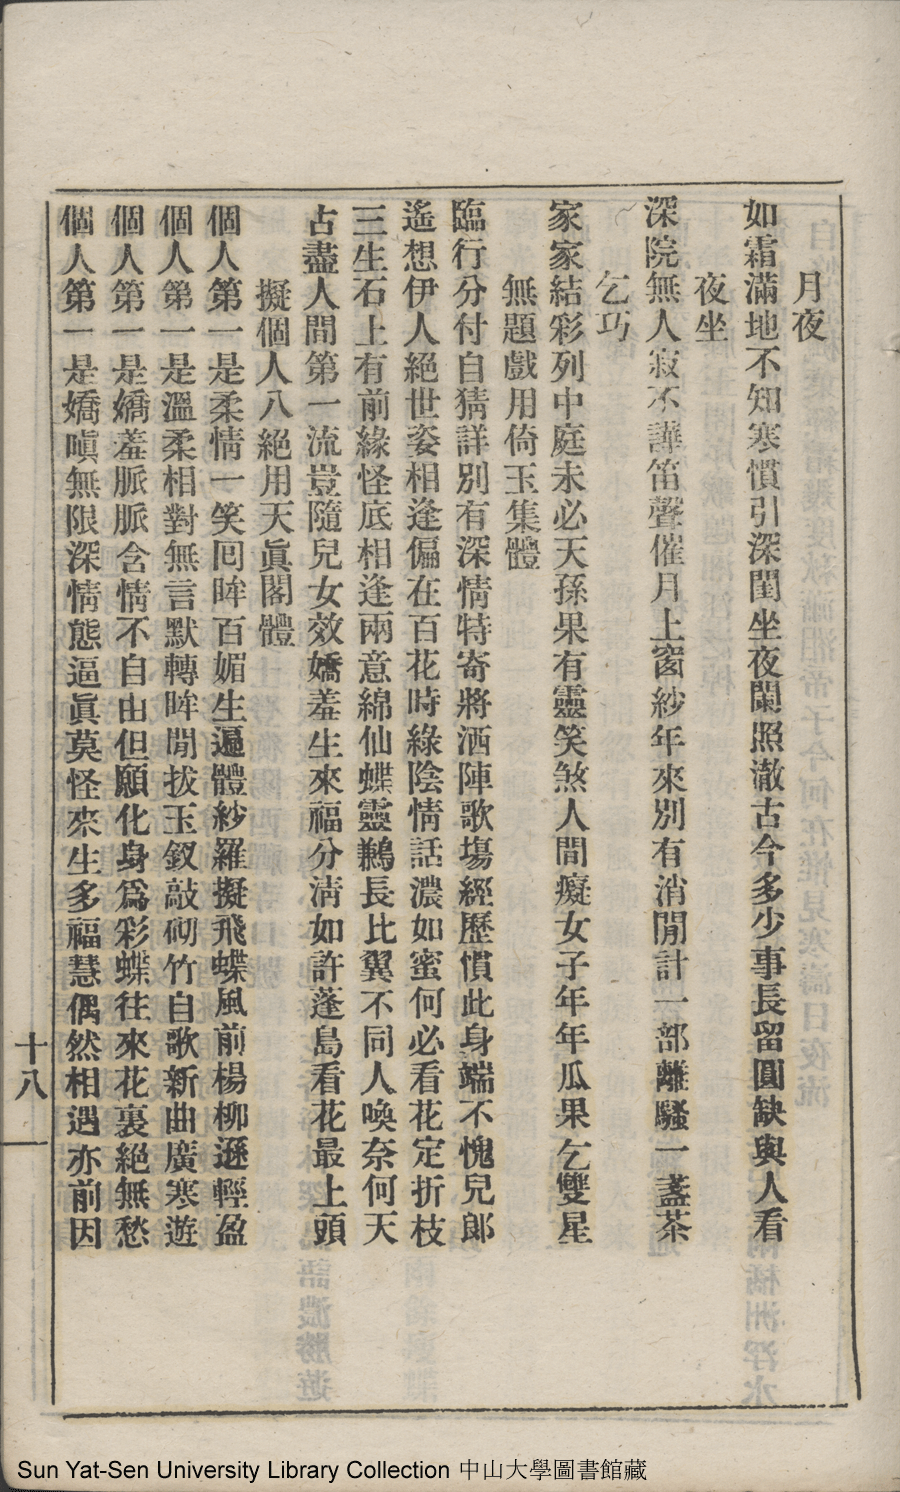 月夜
如霜滿地不知寒慣引深閨坐夜闌照澈古今多少事長留圓缺與人看
夜坐
深院無人寂不譁笛聲催月上窗紗年來別有消閒計一部離騷一盞茶
乞巧
家家結彩列中庭未必天孫果有靈笑煞人間癡女子年年瓜果乞雙星
無題戲用倚玉集體
臨行分付自猜詳別有深情特寄將酒陣歌塲經歷慣此身端不愧兒郞
遙想伊人絕世姿相逢偏在百花時綠陰情話濃如蜜何必看花定折枝
三生石上有前緣怪底相逢兩意綿仙蝶靈鶼長比翼不同人喚奈何天
占盡人間第一流豈隨兒女效嬌羞生來福分淸如許蓬島看花最上頭
擬個人八絕用天眞閣體
個人第一是柔情一笑囘眸百媚生遍體紗羅擬飛蝶風前楊柳遜輕盈
個人第一是溫柔相對無言默轉眸閒拔玉釵敲砌竹自歌新曲廣寒遊
個人第一是嬌羞脈脈含情不自由但願化身爲彩蝶往來花裏絕無愁
個人第一是嬌嗔無限深情態逼眞莫怪來生多福慧偶然相遇亦前因
十八
Sun Yat-Sen University Library Collection 中山大學圖書館藏